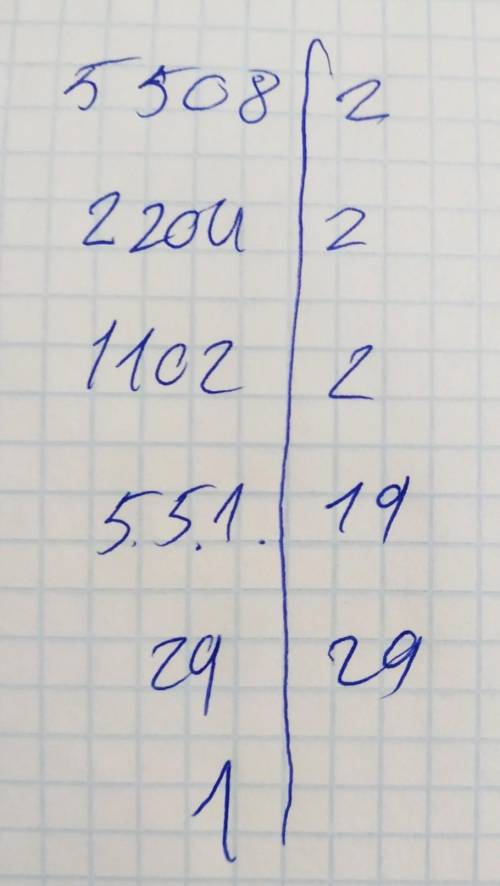 5508 | 2
2204 | 2
1102 | 2
5.5.1. | 19
29 | 29
1 |